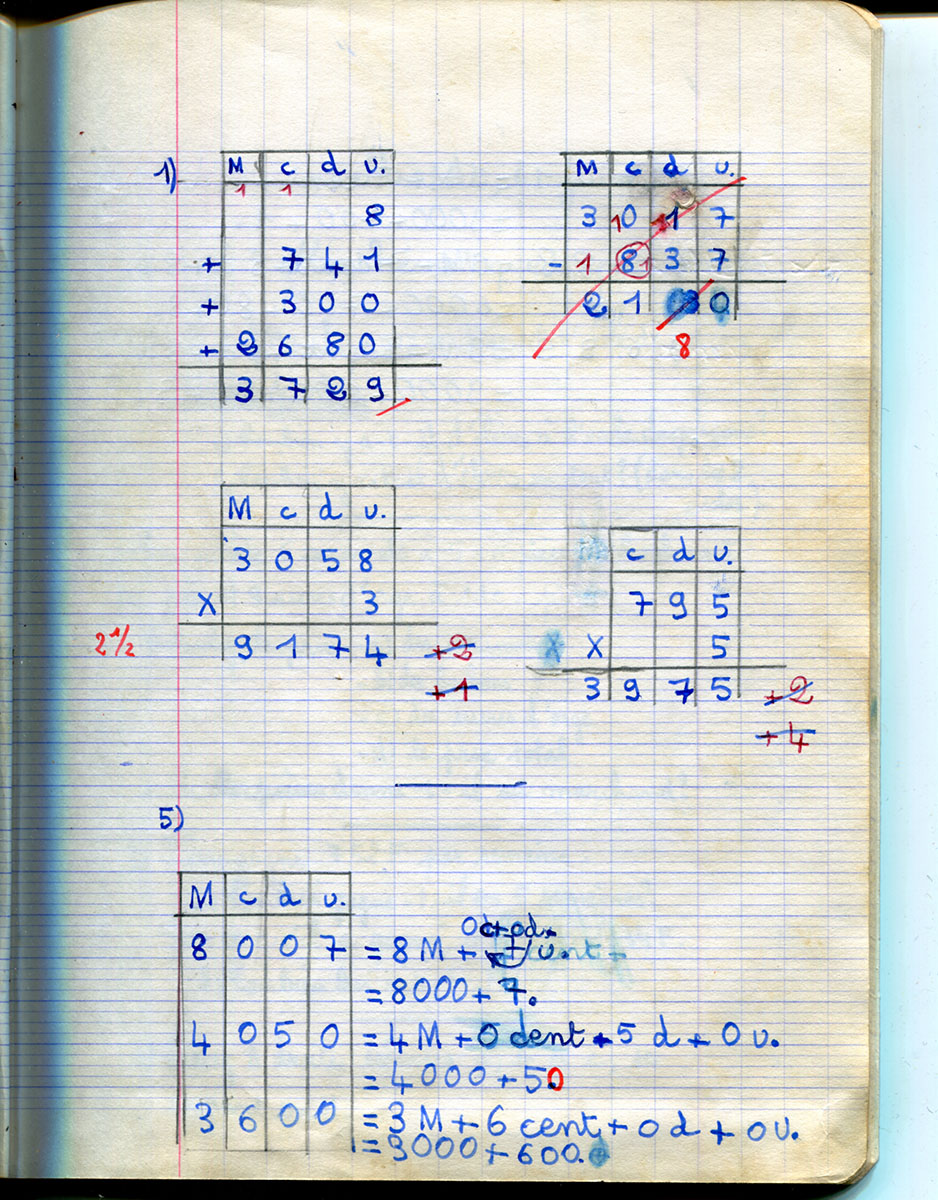 1)
M c d u.
1 1
8
+ 7 4 1
+ 3 0 0
+ 2 6 8 0
3 7 2 9
M c d u.
3 10 11 7
- 1 8 1 3 7
2 1 8 0
8
M c d u.
3 0 5 8
X 3
9 1 7 4
2 1/2
+2
+1
c d u.
7 9 5
X X 5
3 9 7 5
+2
+4
5)
M c d u.
0c+0d+
8 0 0 7 = 8 M + 7 u.
= 8000 + 7.
4 0 5 0 = 4 M + 0 cent + 5 d + 0 u.
= 4000 + 50
3 6 0 0 = 3 M + 6 cent + 0 d + 0 u.
= 3000 + 600.